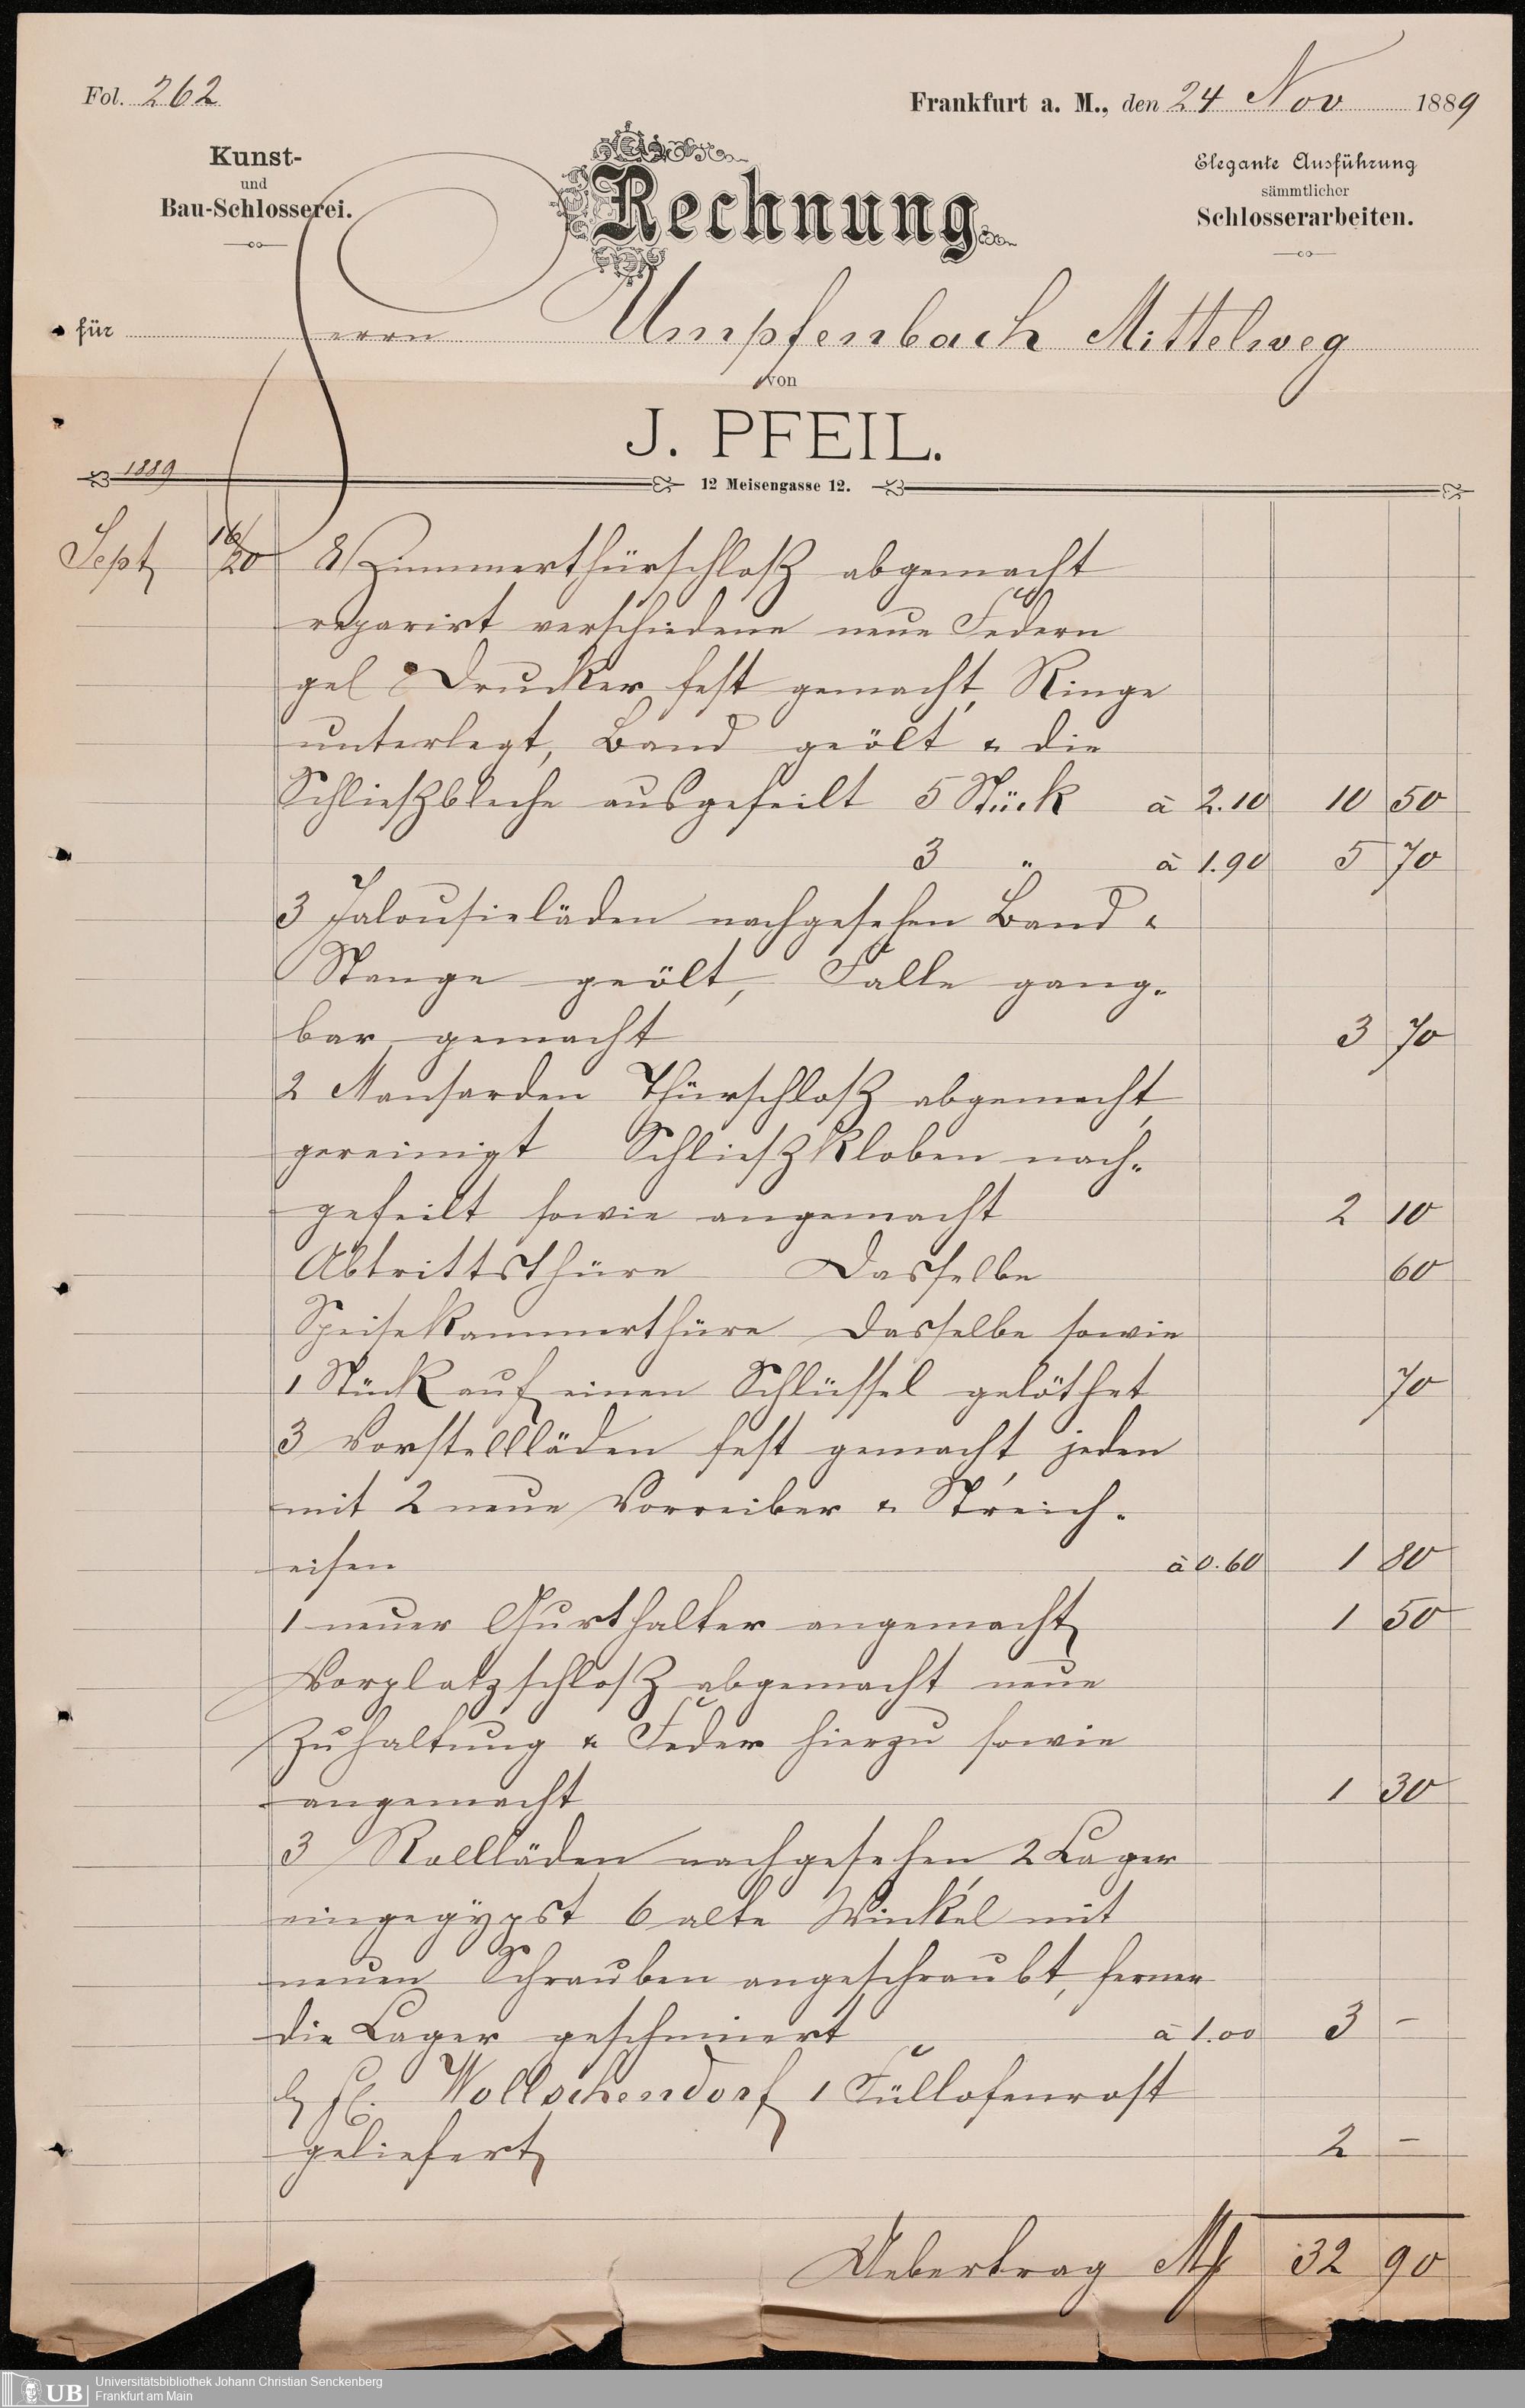 Fol. 262
Frankfurt a. M., den 24 Nov 1889
Kunst-
und
Bau-Schlosserei.
Rechnung.
Elegante Ausführung
sämmtlicher
Schlosserarbeiten.
für Herrn Umpfenbach Mittelweg
von
J. PFEIL.
1889
12 Meisengasse 12.
Sept 16/20 8 Zimmerthürschloß abgemacht
reparirt verschiedene neue Federn
8 Drucker fest gemacht, Ringe
unterlegt, Band geölt & die
Schließbleche ausgefeilt 5 Stück à 2.10 10 50
3 " à 1.90 5 70
3 Jalousieläden nachgesehen Band &
Stange geölt, Falle gang-
bar gemacht 3 70
2 Mansarden Thürschloß abgemacht,
gereinigt Schließkloben nach-
gefeilt sowie angemacht 2 10
Abtrittsthüre Dasselbe 60
Speisekammerthüre dasselbe sowie
1 Stück auf einen Schlüssel gelöthet 70
3 Vorstellläden fest gemacht, jeden
mit 2 neue Vorreiber & Streich-
eisen à 0.60 1 80
1 neuer Gurthalter angemacht 1 50
Vorplatzschloß abgemacht neue
Zuhaltung & Feder hierzu sowie
angemacht 1 30
3 Rollläden nachgesehen, 2 Lager
eingegÿpst 6 alte Winkel mit
neuen Schrauben angeschraubt, ferner
die Lager geschmiert à 1.00 3 –
Wollschendorf 1 Füllofenrost
geliefert 2 –
Uebertrag Mk 32 90
UB
Universitätsbibliothek Johann Christian Senckenberg
Frankfurt am Main